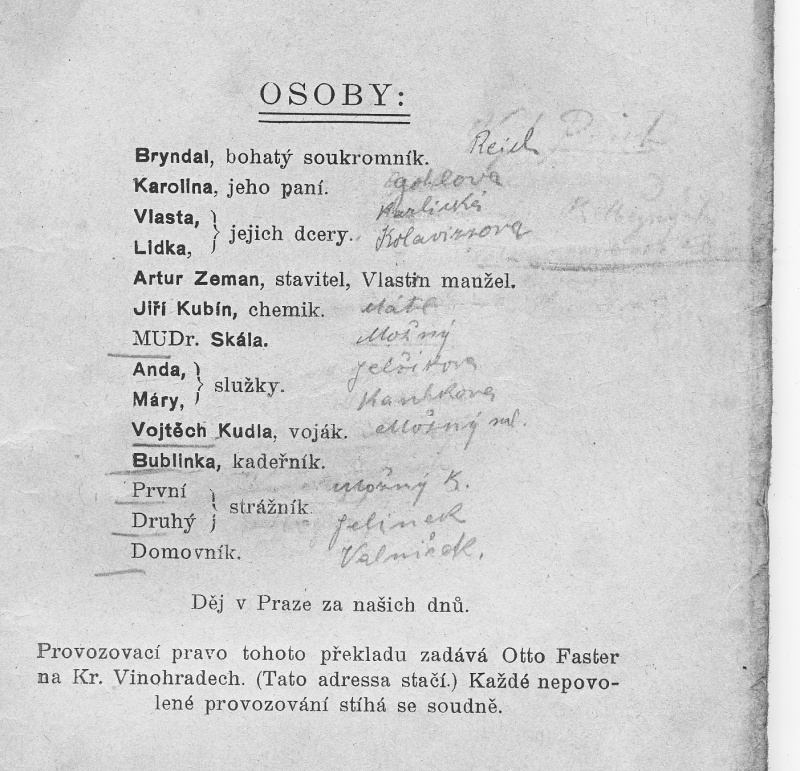 OSOBY:
Bryndal, bohatý soukromník. Reich
Karolina, jeho paní.
Vlasta,
} jejich dcery.
Lidka,
Artur Zeman, stavitel, Vlastin manžel.
Jiří Kubín, chemik.
MUDr. Skála. Možný
Anda,
} služky.
Máry,
Vojtěch Kudla, voják. Možný ml.
Bublinka, kadeřník.
První Možný K.
} strážník
Druhý Jelinek
Domovník. Valníček.
Děj v Praze za našich dnů.
Provozovací pravo tohoto překladu zadává Otto Faster
na Kr. Vinohradech. (Tato adressa stačí.) Každé nepovo-
lené provozování stíhá se soudně.